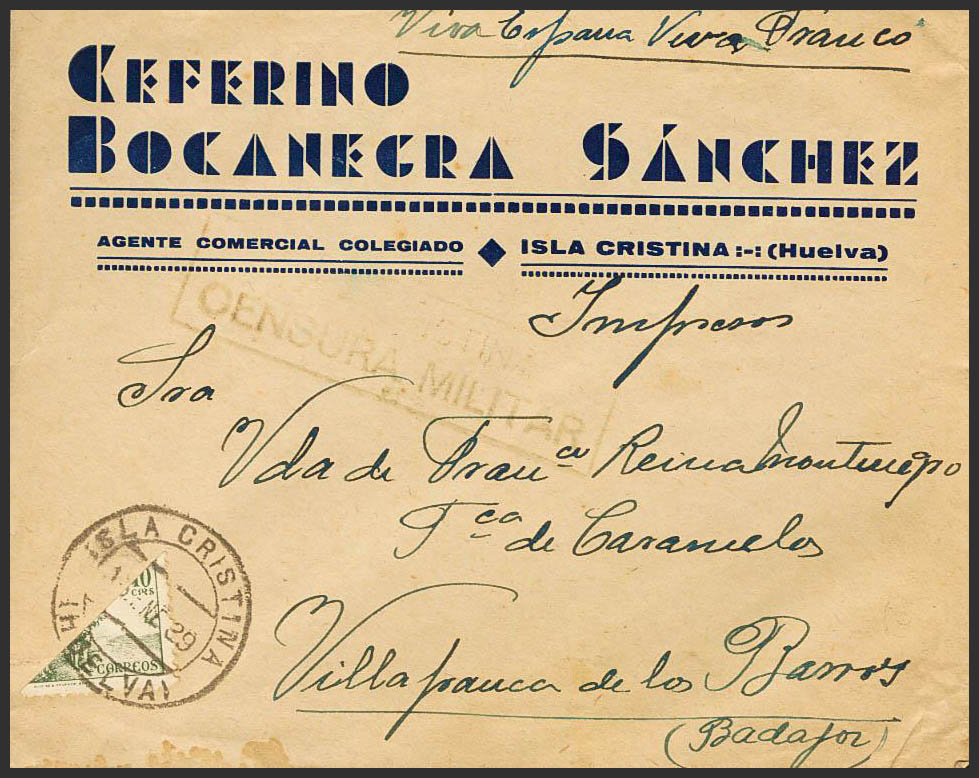 Viva España Viva Franco
CEFERINO
BOCANEGRA SÁNCHEZ
AGENTE COMERCIAL COLEGIADO ◆ ISLA CRISTINA :-: (Huelva)
Impresos
CENSURA MILITAR
Sra
Vda de Franᶜᵒ Reina Montenegro
Fᶜᵃ de Caramelos
Villafranca de los Barros
(Badajoz)
ISLA CRISTINA
10
CTS
CORREOS